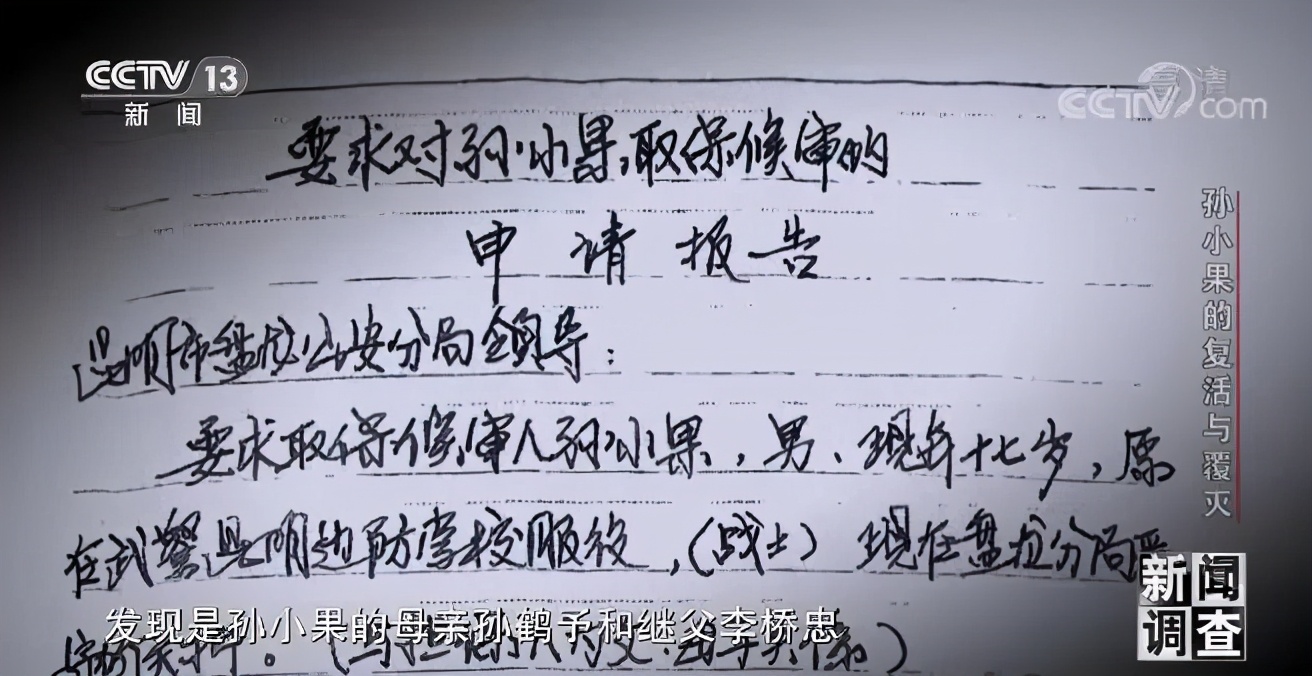 CCTV 13
新闻
高清
CCTV.com
要求对孙小果取保候审的
申请报告
昆明市盘龙公安分局领导：
要求取保候审人孙小果，男、现年十七岁，原
在武警昆明边防学校服役，（战士）现在盘龙分局
发现是孙小果的母亲孙鹤予和继父李桥忠
孙小果的复活与覆灭
新闻
调查